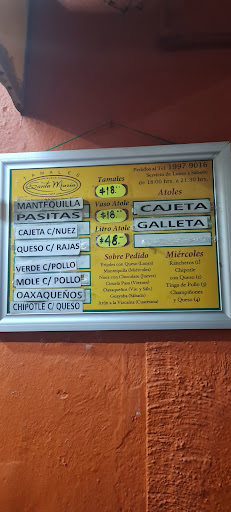 TAMALES
Santa María
MANTEQUILLA
PASITAS
CAJETA C/NUEZ
QUESO C/ RAJAS
VERDE C/POLLO
MOLE C/ POLLO
OAXAQUEÑOS
CHIPOTLE C/ QUESO
Tamales
$18.
Vaso Atole
$18.
Litro Atole
$48.
Pedidos al Tel. 1997 9016
Servicio de Lunes a Sábado
de 18:00 hrs. a 21:30 hrs.
Atoles
CAJETA
GALLETA
Sobre Pedido
Frijoles con Queso (Lunes)
Mantequilla (Miércoles)
Nuez con Chocolate (Jueves)
Ciruela Pasa (Viernes)
Oaxaqueños (Vie. y Sáb.)
Guayaba (Sábado)
Atún a la Vizcaína (Cuaresma)
Miércoles
Rancheros (1)
Chipotle
con Queso (2)
Tinga de Pollo (3)
Champiñones
y Queso (4)